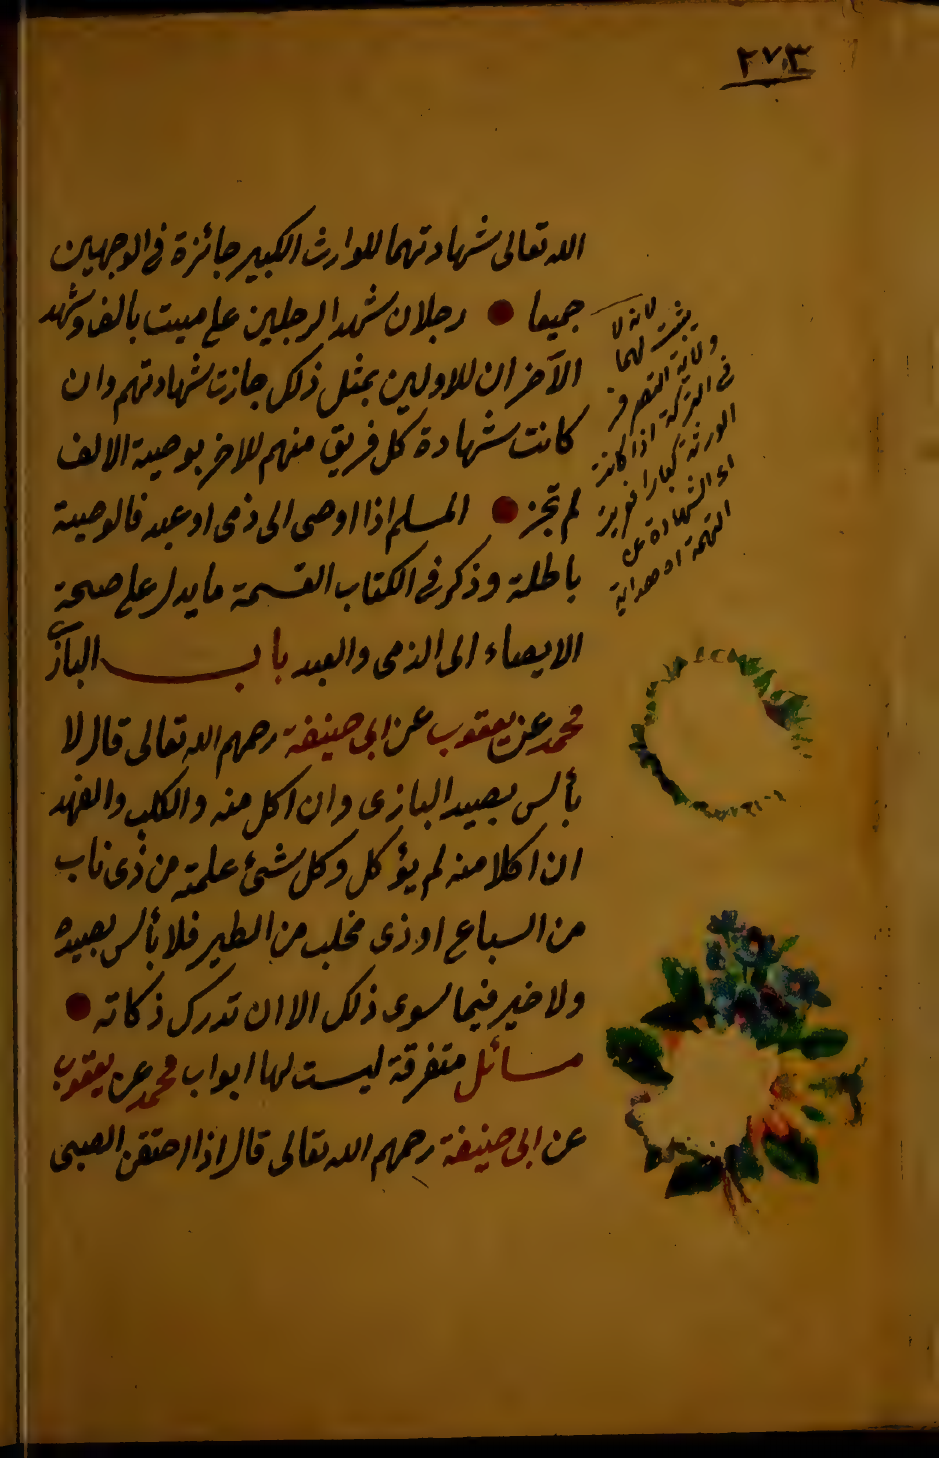 ٢٧٣
الله تعالى شهادتهما للوارث الكبير جائزة في الوجهين
جميعا ● رجلان شهدا لرجلين على ميت بالف وشهد
الآخران للاولين بمثل ذلك جازت شهادتهم وان
كانت شهادة كل فريق منهم للاخر بوصية الالف
لم تجز ● المسلم اذا اوصى الى ذمى او عبد فالوصية
باطلة وذكر في الكتاب القسمة ما يدل على صحة
الايصاء الى الذمى والعبد باب البازى
محمد عن يعقوب عن ابى حنيفة رحمهم الله تعالى قال لا
بأس بصيد البازى وان اكل منه والكلب والفهد
ان اكلا منه لم يؤكل وكل شئ علمته من ذى ناب
من السباع او ذى مخلب من الطير فلا بأس بصيده
ولا خير فيما سوى ذلك الا ان تدرك ذكاته ●
مسائل متفرقة ليست لها ابواب محمد عن يعقوب
عن ابى حنيفة رحمهم الله تعالى قال اذا احتقن الصبى
لانه لا
يثبت لهما
ولاية التصرف
في التركة اذا كانت
الورثة كبارا
الشهادة عن
التهمة اه هداية